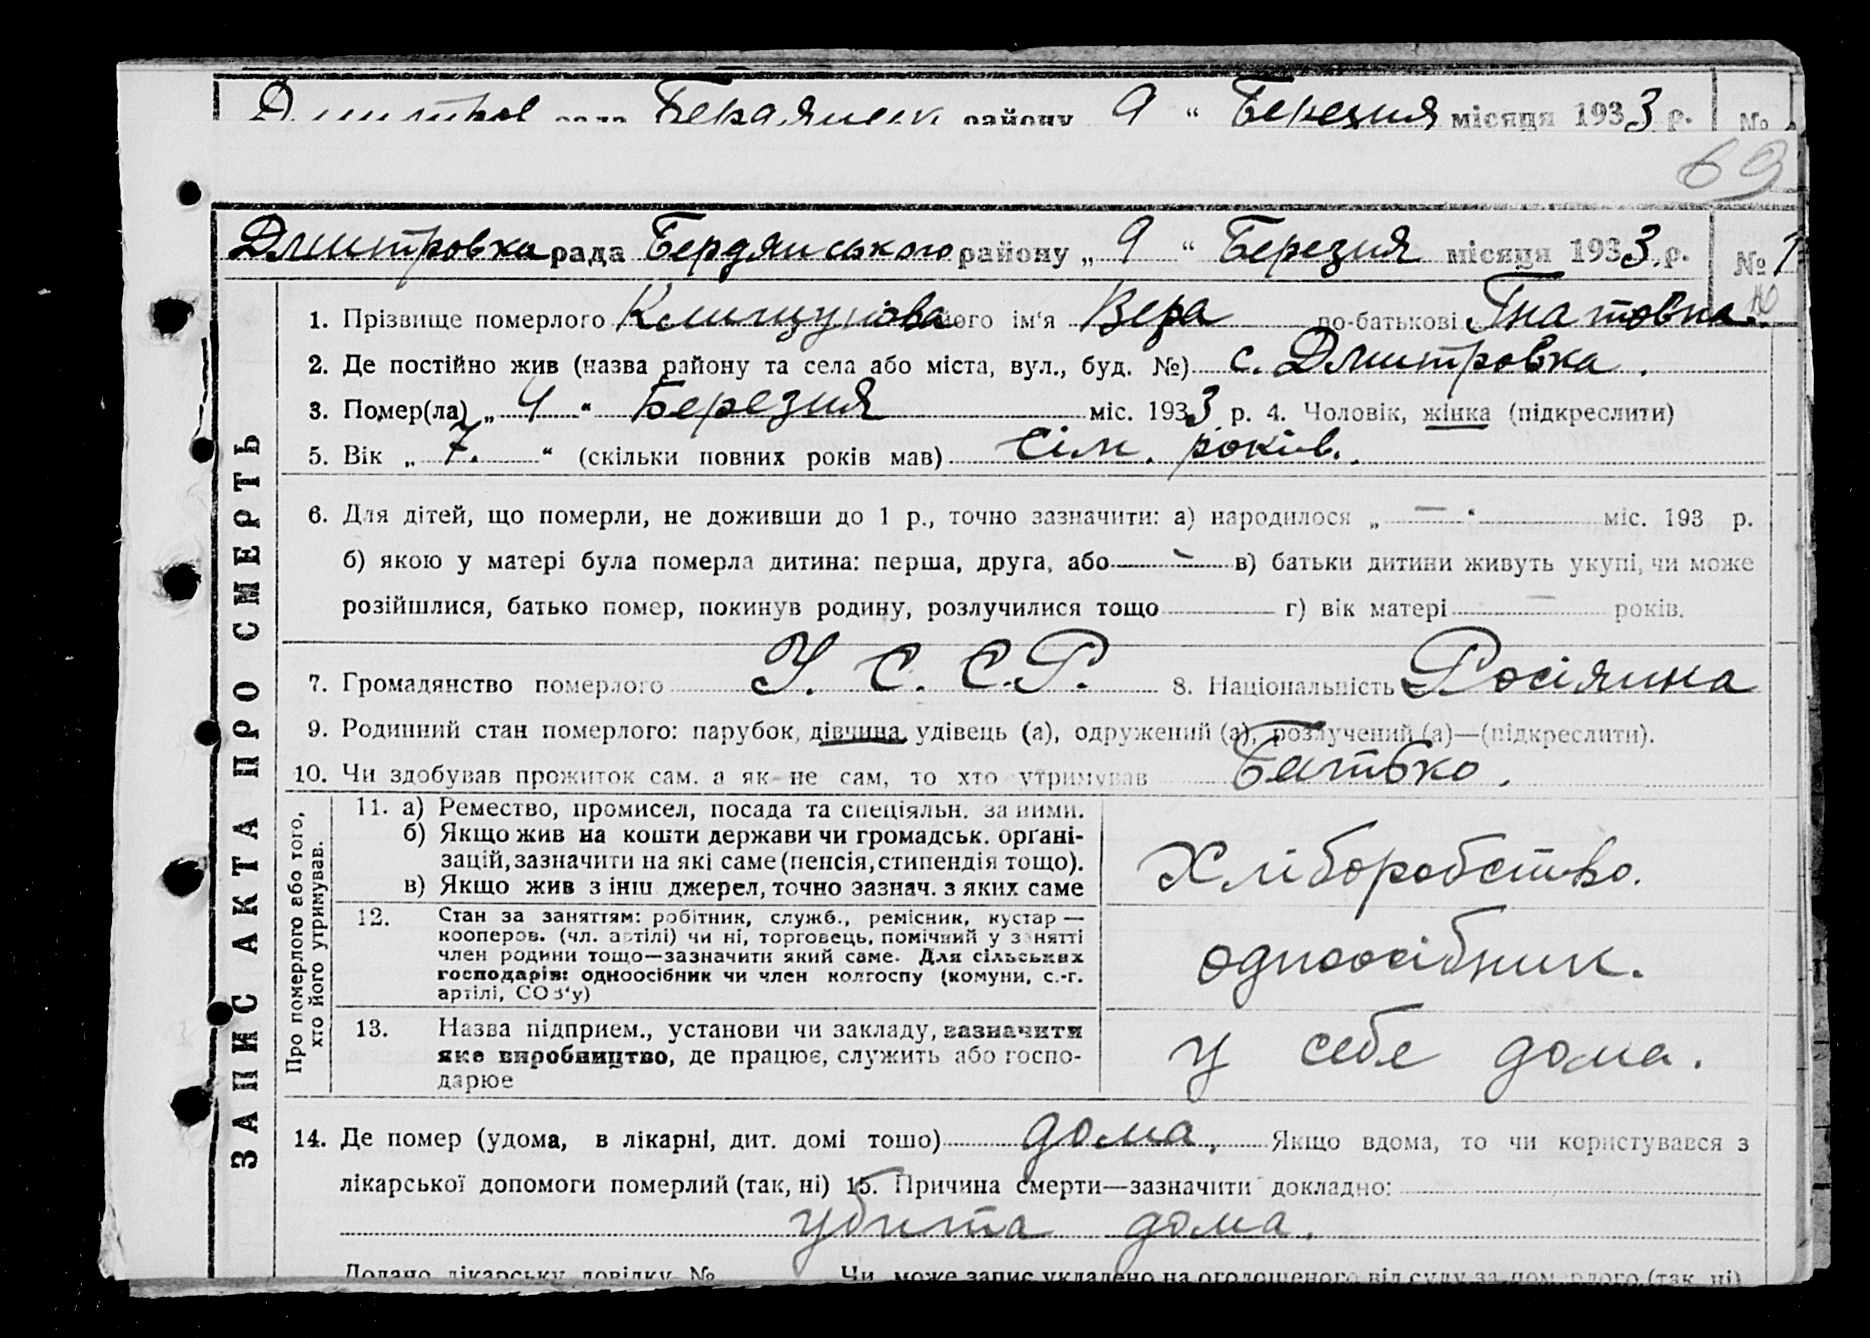 Дмитров рада Бердянськ району 9 " Березня місяця 1933 р. №
69
Дмитровка рада Бердянського району „ 9 " Березня місяця 1933 р. № 1
1. Прізвище померлого його ім'я Вера по-батькові Гнатовна.
2. Де постійно жив (назва району та села або міста, вул., буд. №) с. Дмитровка.
3. Помер(ла) „ 4 " Березня міс. 1933 р. 4. Чоловік, жінка (підкреслити)
5. Вік „ 7. " (скільки повних років мав) сім. років.
6. Для дітей, що померли, не доживши до 1 р., точно зазначити: а) народилося „ — " міс. 193 р.
б) якою у матері була померла дитина: перша, друга, або — в) батьки дитини живуть укупі, чи може
розійшлися, батько помер, покинув родину, розлучилися тощо г) вік матері — років.
7. Громадянство померлого У. С. С. Р. 8. Національність Росіянка
9. Родинний стан померлого: парубок, дівчина, удівець (а), одружений (а), розлучений (а)—(підкреслити).
10. Чи здобував прожиток сам, а як не сам, то хто утримував Батько.
ЗАПИС АКТА ПРО СМЕРТЬ
Про померлого або того, хто його утримував.
11. а) Ремество, промисел, посада та спеціяльн. за ними.
б) Якщо жив на кошти держави чи громадськ. орґані-
зацій, зазначити на які саме (пенсія, стипендія тощо).
в) Якщо жив з інш джерел, точно зазнач. з яких саме
Хліборобство.
12. Стан за заняттям: робітник, служб., ремісник, кустар —
кооперов. (чл. артілі) чи ні, торговець, помічний у занятті
член родини тощо—зазначити який саме. Для сільських
господарів: одноосібник чи член колгоспу (комуни, с.-г.
артілі, СОЗ'у)
одноосібник.
13. Назва підприєм., установи чи закладу, зазначити
яке виробництво, де працює, служить або госпо-
дарює
у себе дома.
14. Де помер (удома, в лікарні, дит. домі тощо) дома. Якщо вдома, то чи користувався з
лікарської допомоги померлий (так, ні) 15. Причина смерти—зазначити докладно:
убита дома.
Додано лікарську довідку № Чи може запис укладено на оголошеного від суду за померлого (так, ні)